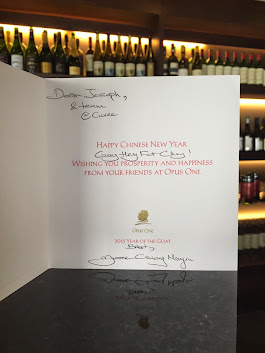 Dear Joseph,
& team
@ Cuvee
HAPPY CHINESE NEW YEAR
Gong Hey Fat Choy!
WISHING YOU PROSPERITY AND HAPPINESS
FROM YOUR FRIENDS AT OPUS ONE
OPUS ONE
2015 YEAR OF THE GOAT
Best,